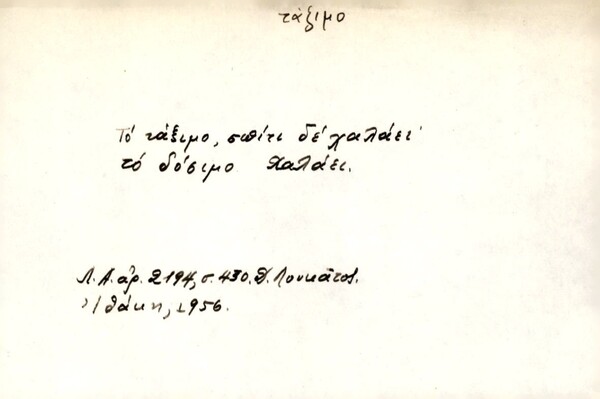 τάξιμο
Τό τάξιμο, σπίτι δέ χαλάει·
τό δόσιμο χαλάει.
Λ.Α. ἀρ. 2194, σ. 430, Δ. Λουκᾶτος.
Ἰθάκη, 1956.